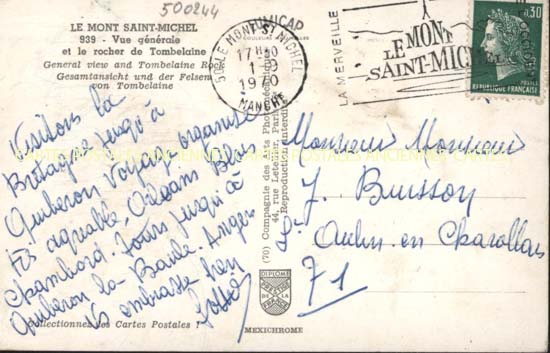 500244
LE MONT SAINT-MICHEL
939 - Vue générale
et le rocher de Tombelaine
General view and Tombelaine Rock
Gesamtansicht und der Felsen
von Tombelaine
50 LE MONT-ST-MICHEL
17 H 30
1970
MANCHE
LA MERVEILLE
LE MONT
SAINT-MICHEL
0,30
POSTES
REPUBLIQUE FRANÇAISE
Visitons la
Bretagne jusqu'à
Quiberon Voyage organisé
très agréable Orléans Blois
Chambord. Tours jusqu'à
Quiberon la Baule. Angers
Vs embrasse bien
CARTES POSTALES ANCIENNES
(70) Compagnie des Arts Photomécaniques
44, rue Letellier, Paris
Reproduction interdite
Monsieur Monsieur
J. Buisson
St Aubin en Charollais
71
DIPLOME
PRESTIGE
DE LA
FRANCE
Collectionnez des Cartes Postales !
MEXICHROME